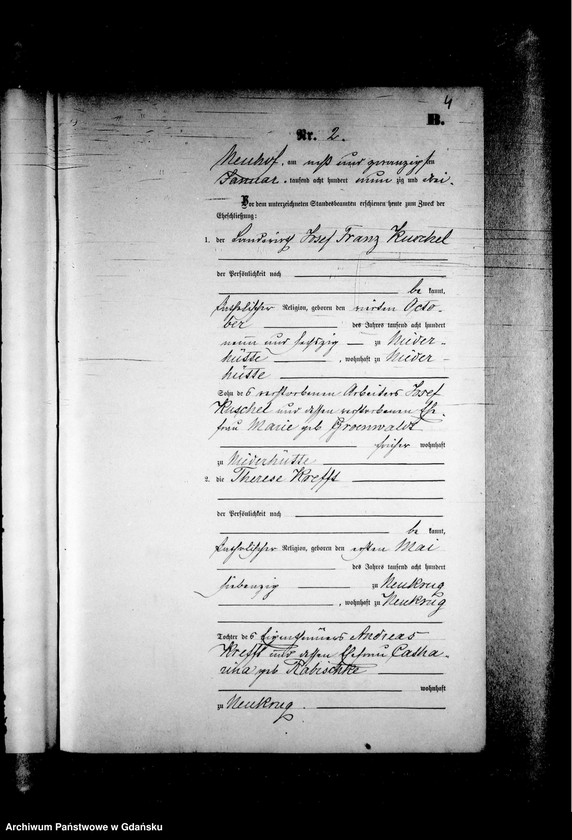 4
B.
Nr. 2.
Neuhof, am acht und zwanzigsten
Januar tausend acht hundert neun zig und drei.
Vor dem unterzeichneten Standesbeamten erschienen heute zum Zweck der
Eheschließung:
1. der Landwirth Josef Franz Kuschel
der Persönlichkeit nach
be kannt,
katholischer Religion, geboren den vierten Octo-
ber des Jahres tausend acht hundert
neun und sechszig zu Nieder-
hütte, wohnhaft zu Nieder-
hütte
Sohn des verstorbenen Arbeiters Josef
Kuschel und dessen verstorbenen Eh.
frau Marie geb Groenwaldt
früher wohnhaft
zu Niederhütte
2. die Therese Krefft
der Persönlichkeit nach
be kannt,
katholischer Religion, geboren den ersten Mai
des Jahres tausend acht hundert
siebenzig zu Neukrug
, wohnhaft zu Neukrug
Tochter des Eigenthümers Andreas
Krefft und dessen Ehefrau Catha-
rina geb Rabischke
wohnhaft
zu Neukrug.
Archiwum Państwowe w Gdańsku